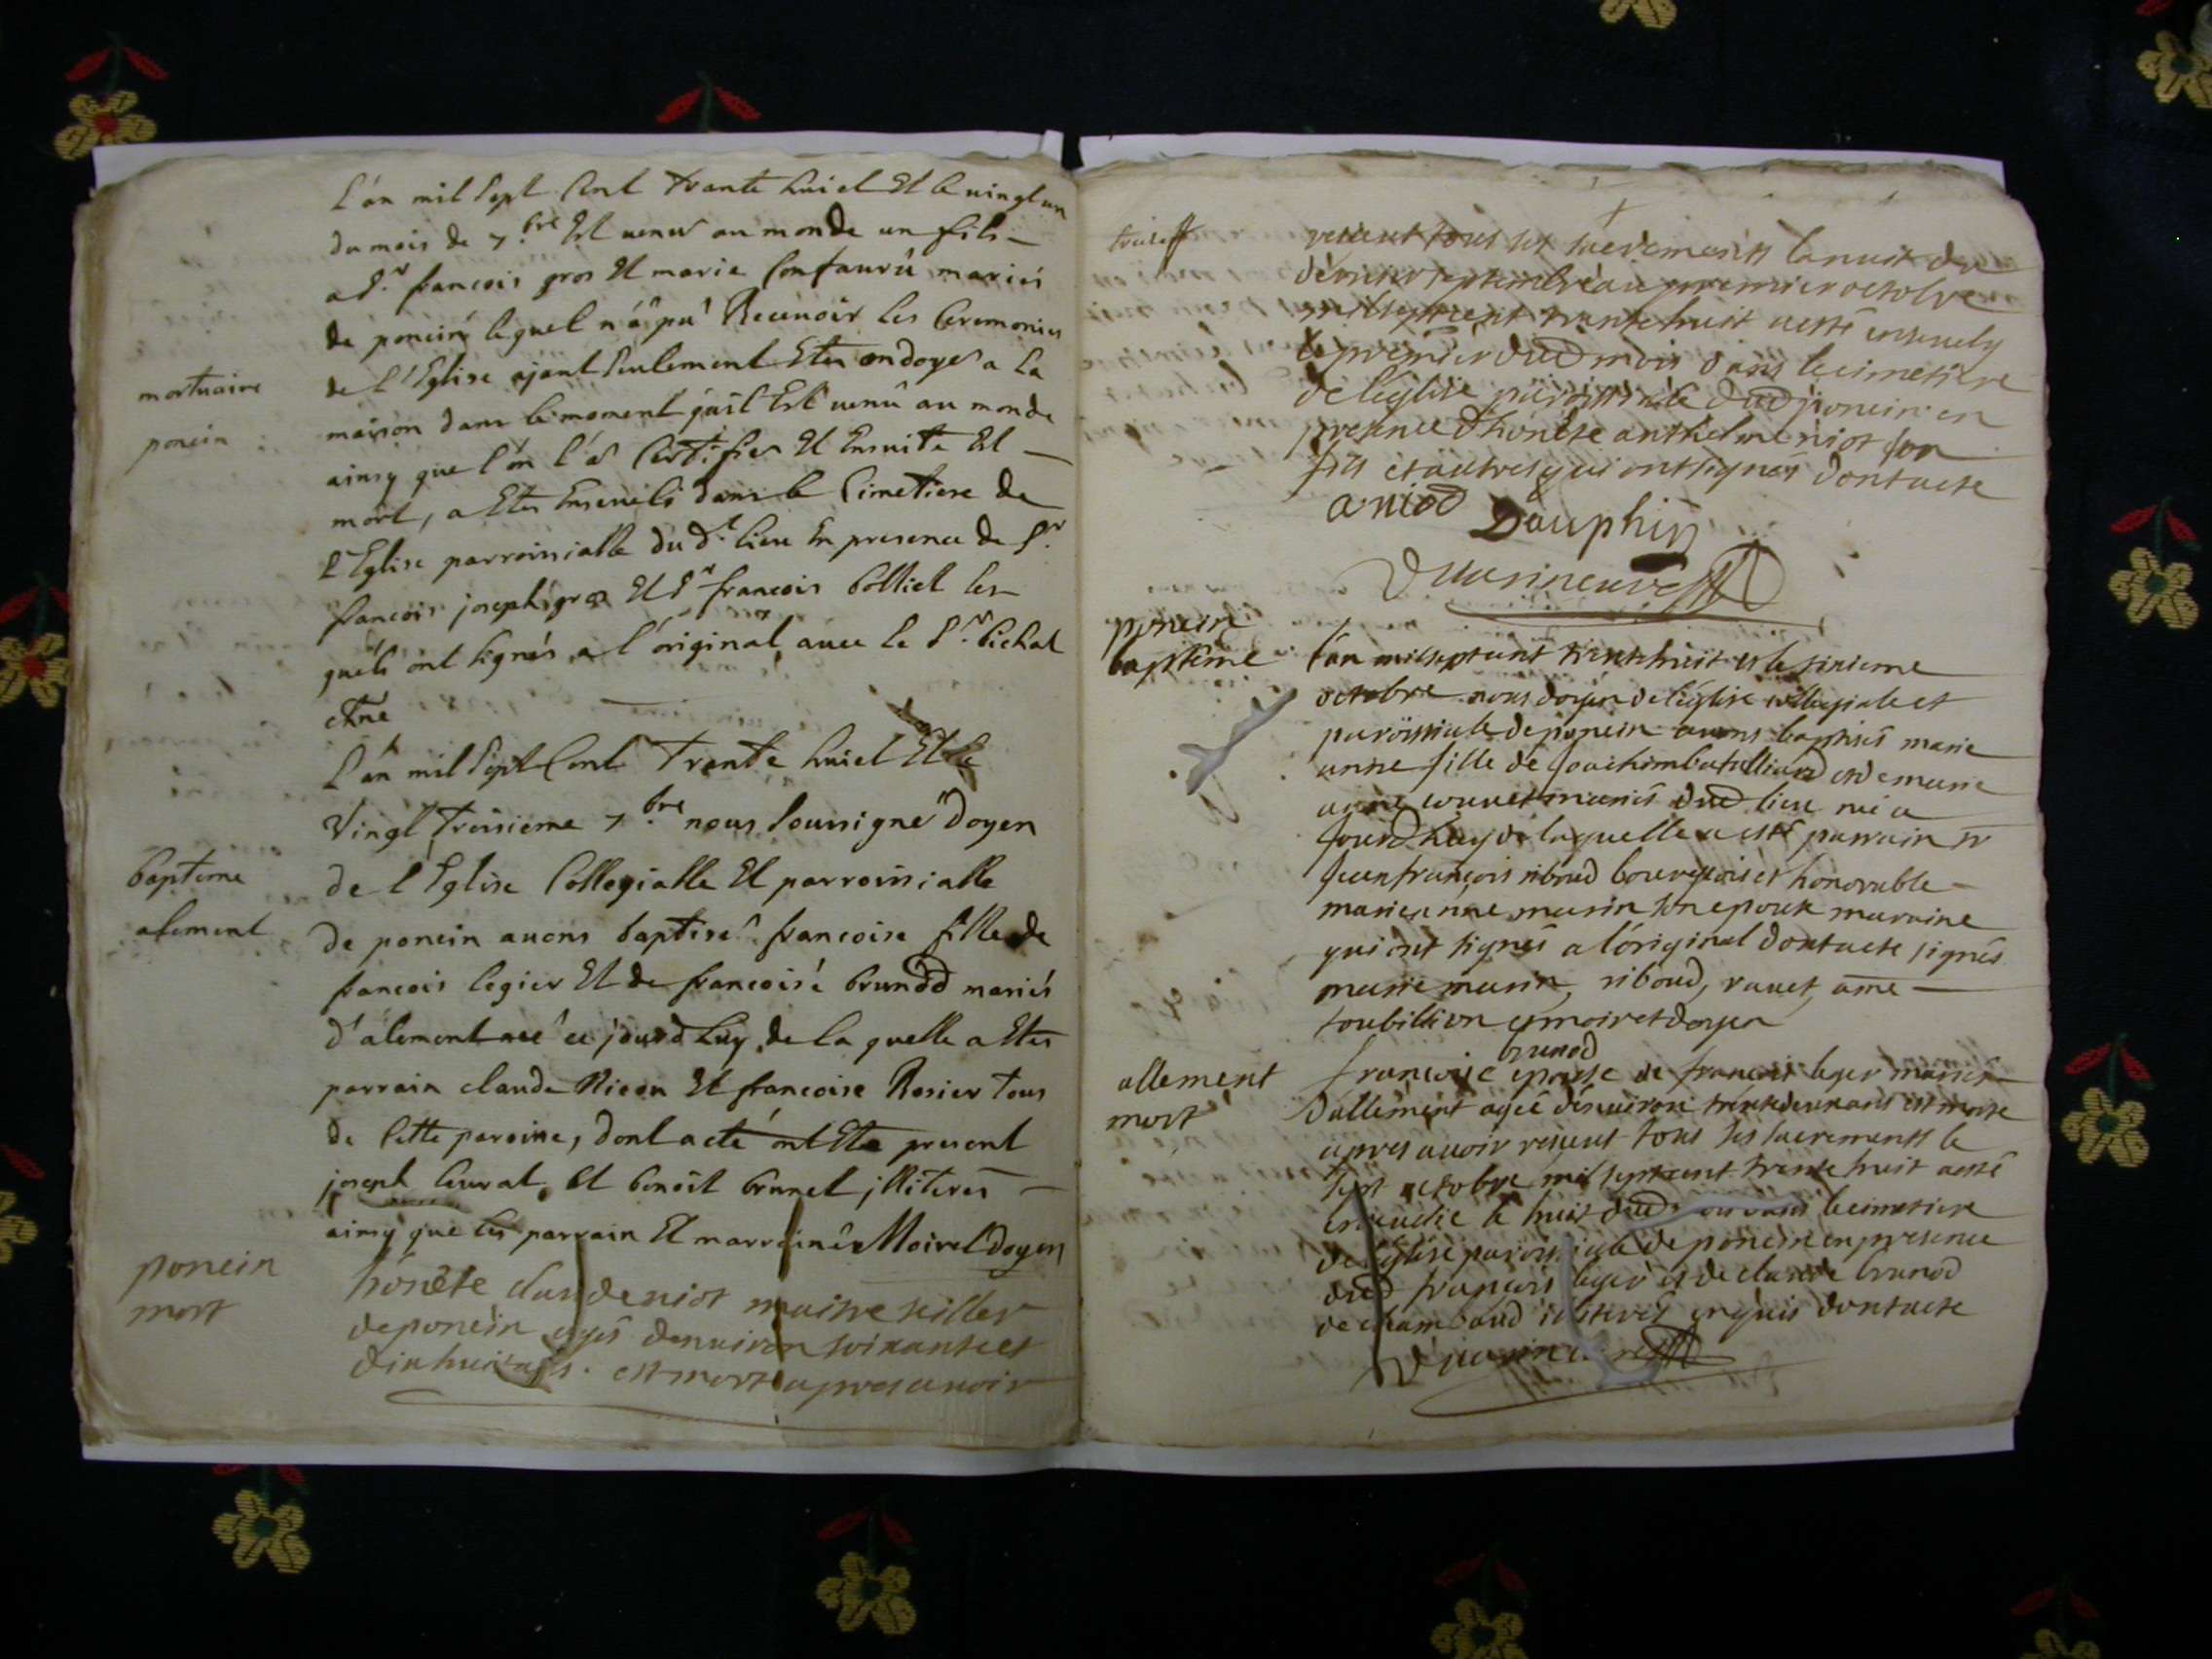 L'an mil sept Cent Trante huict Et le vingt un
du mois de 7.bre Est venu au monde un fils
a Sr. francois gros Et marie Confaurû mariés
de poncin lequel n'a pû Recevoir les Ceremonies
de l'Eglise ajant seulement Etes ondoyes a la
mortuaire
maison dans le moment quil Est venû au monde
poncin
ainsy que l'on l'a Certifies Et Ensuite Est
mort, a Etes Enseveli dans le Cimetiere de
l'Eglise parroissialle du dt. lieu En presence de Sr.
francois joseph gros Et Sr francois Colliet les
quels ont signés a l'original avec le Sr. Pichat
L'an mil sept Cent Trente huict Et le
Vingt Troisieme 7.bre nous soussigné Doyen
bapteme
de l'Eglise Collegialle Et parroissialle
alement
de poncin avons baptisé francoise fille de
francois legier Et de francoise brunod mariés
d'alement née ce jourd huy de la quelle a Etes
parrain claude Nicon Et francoise Rosier tous
de Cette paroisse, dont acte ont Ete present
joseph Cuvrat, Et benoit brunet jlliteres
ainsy que les parrain Et marraine Moiret Doyen
poncin
mort
honête claude niot maitre
de poncin agés denviron soixante et
dixhuict ans. est mort apres avoir
receut tous ses sacrements la nuit du
dernier septembre au premier octobre
mil sept cent trente huit a esté ensevely
le premier dud mois dans le cimetiere
de l'eglise paroissiale dud poncin en
presence d'honête anthelme niot son
fils et autres qui ont signés dont acte
a niod Dauphin
poncin
baptême
l'an mil sept cent trente huit et le sixieme
octobre nous doyen de l'eglise collegiale et
paroissiale de poncin avons baptisés marie
anne fille de Joachim batilliard et de marie
anne mariés dud lieu née a
Jourd huy de laquelle a esté parrain sr
Jean francois riboud bourgeois et honorable
marie anne marin son epouse maraine
qui ont signés a l'original dont acte signés
marie marin, riboud, ravet, ame
toubillion et moiret doyen
brunod
allement
francoise epouse de francois leger mariés
mort
d'allement agée d'environ trente deux ans est morte
apres avoir receut tous ses sacrements le
sept octobre mil sept cent trente huit a esté
ensevelie le huit dud dans le cimetiere
de l'eglise paroissiale de poncin en presence
dud francois leger et de claude brunod
de chambaud iliterés enquis dont acte